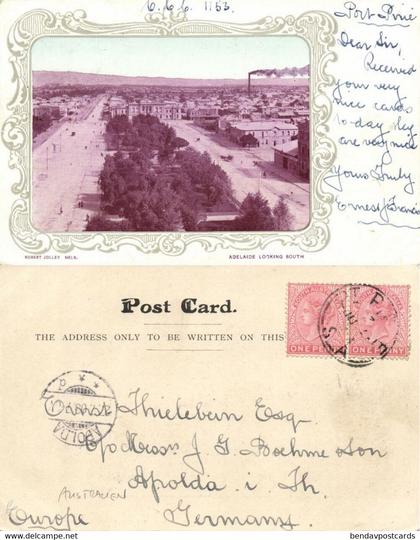 C.C.C. 1163.
Port Pirie
Dear Sir,
Received
your very
nice cards
to day they
are very nice
Yours Truly
Ernest J Francis
ROBERT JOLLEY MELB.
ADELAIDE LOOKING SOUTH
Post Card.
THE ADDRESS ONLY TO BE WRITTEN ON THIS
ONE PENNY
S.A
APOLDA
Thielebein Esq.
C/o Messrs J. G. Boehme & Son
Apolda i. Th.
AUSTRALIEN
Europe Germany